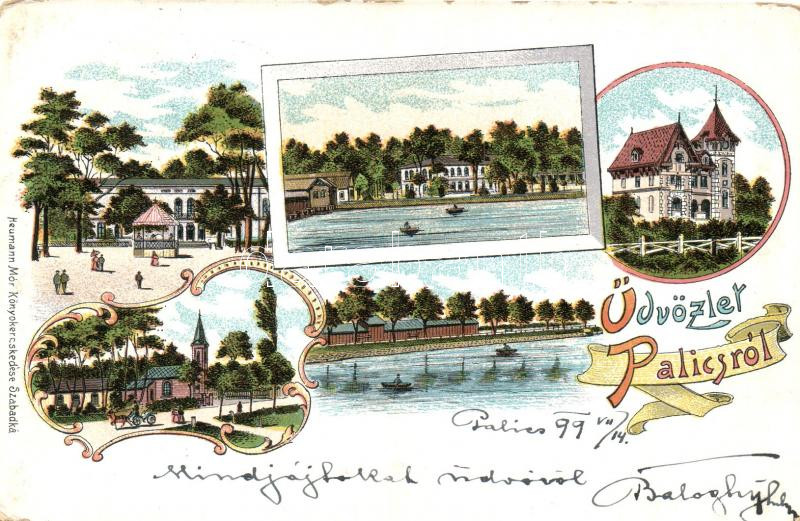 Üdvözlet
Palicsról
Heumann Mór Könyvkereskedése Szabadka
Palics 99 VII/14.
Mindjájtokat üdvözöl
Baloghy